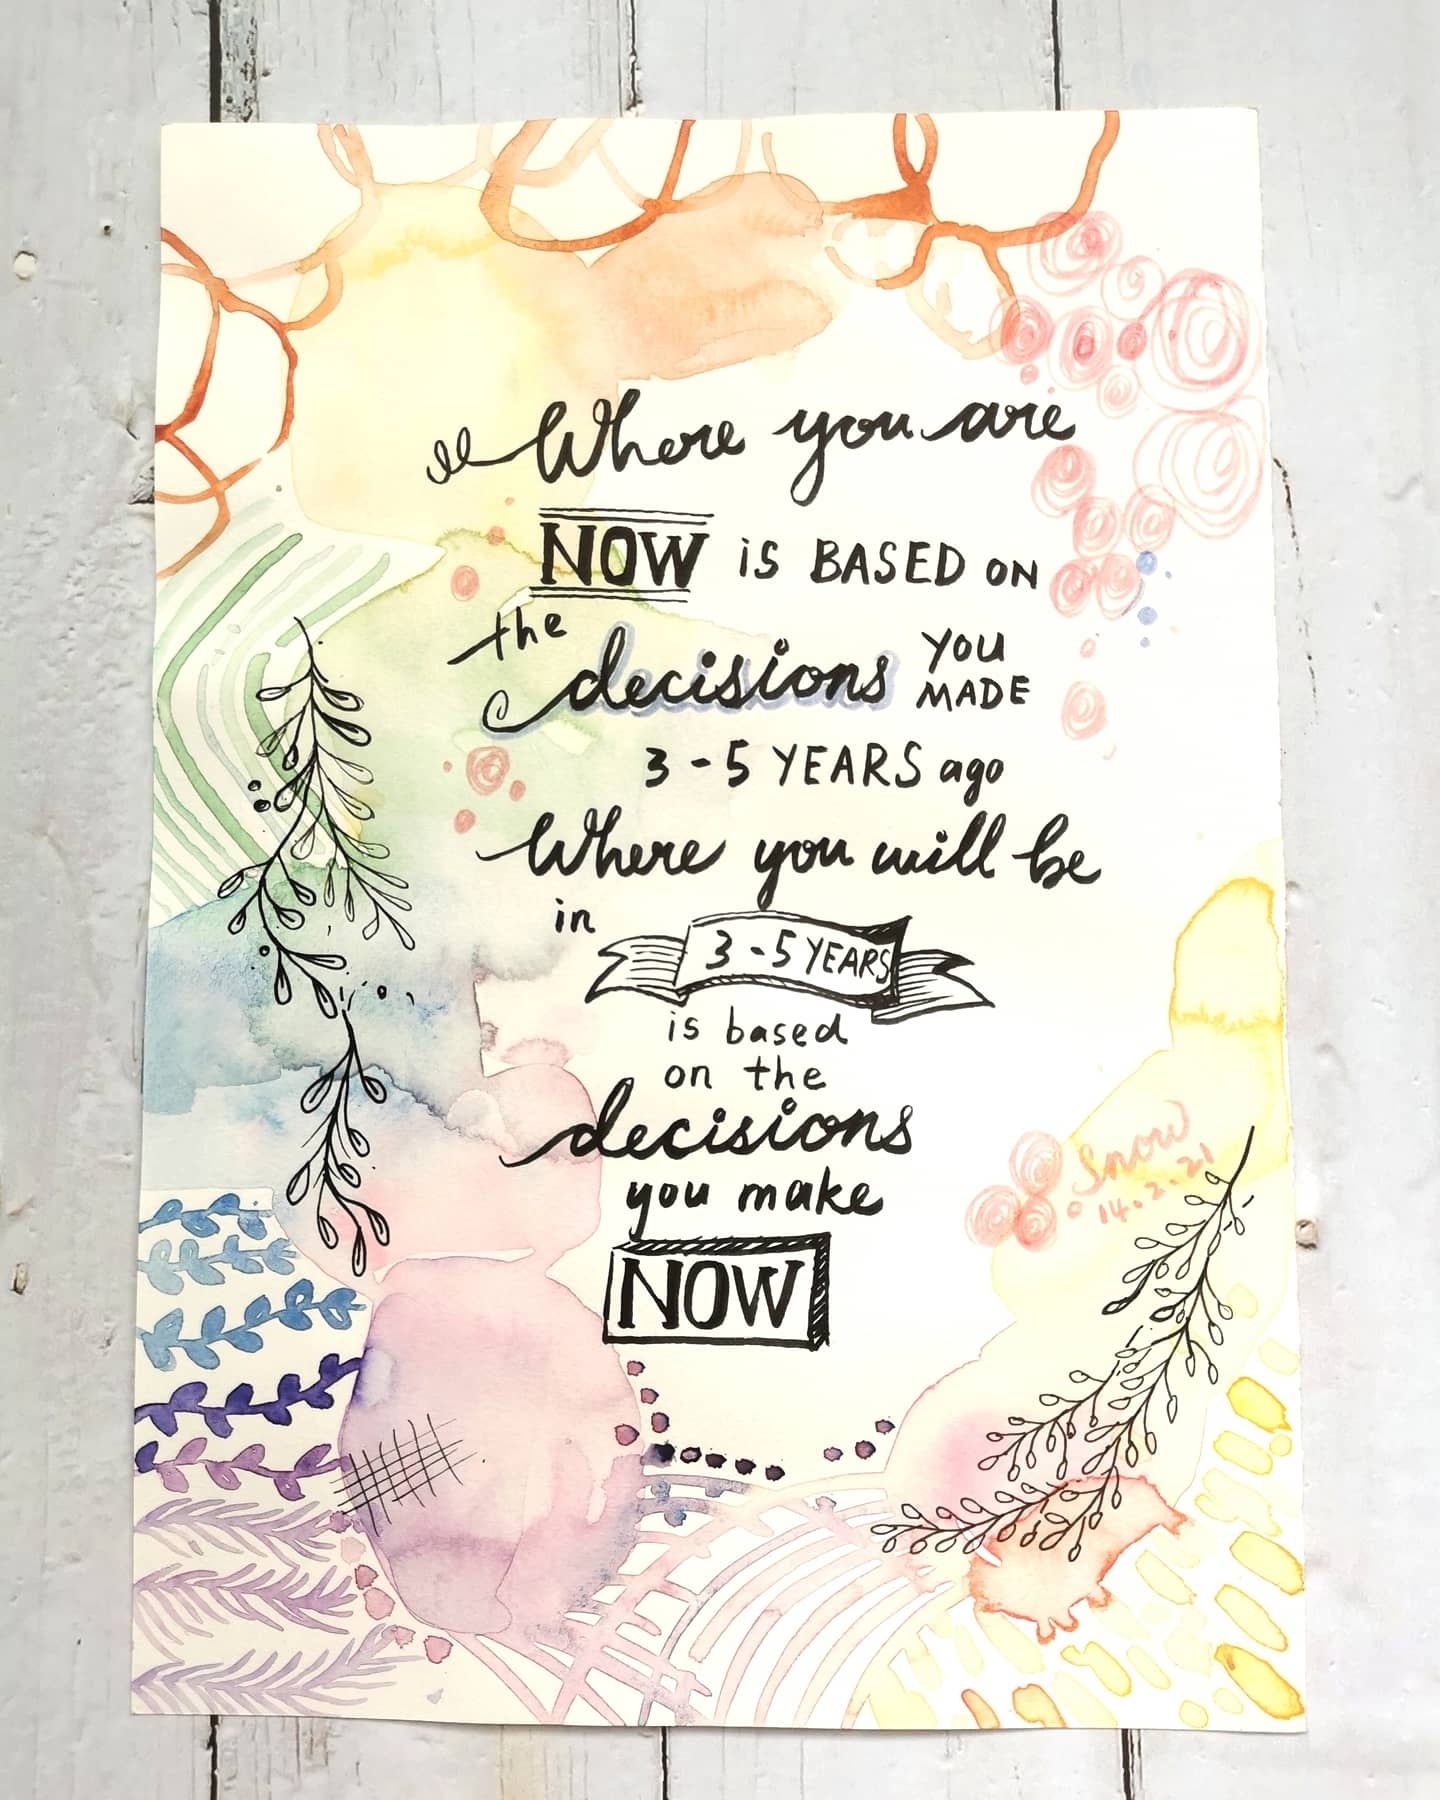 Where you are
NOW is BASED ON
the decisions YOU MADE
3-5 YEARS ago
Where you will be
in 3-5 YEARS
is based
on the
decisions
you make
NOW
Snow
14.2.21